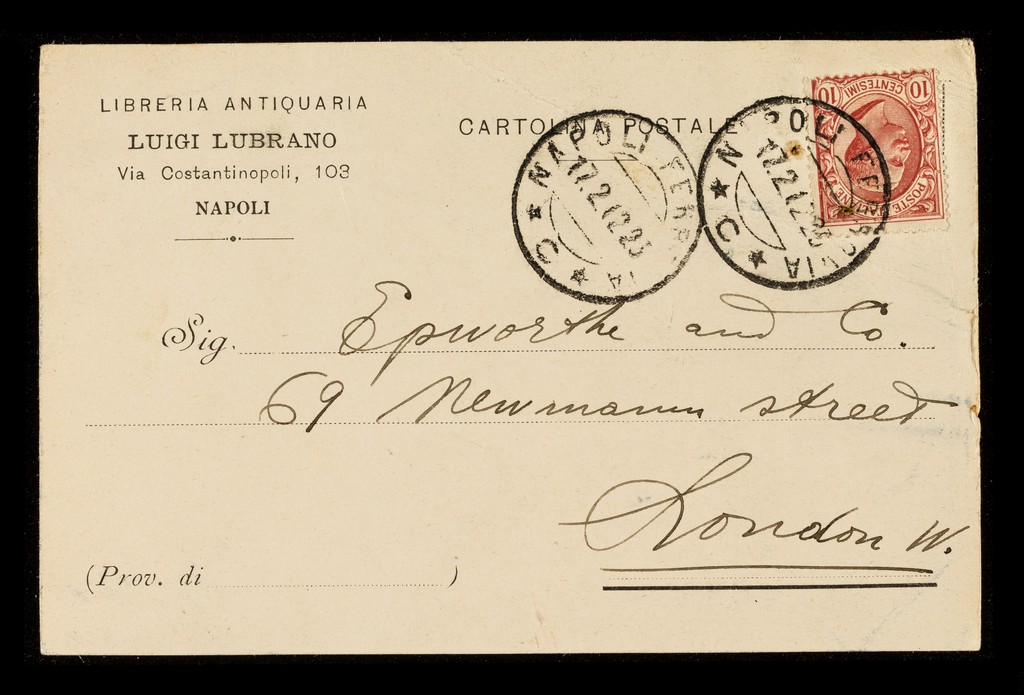 LIBRERIA ANTIQUARIA
LUIGI LUBRANO
Via Costantinopoli, 103
NAPOLI
CARTOLINA POSTALE
NAPOLI FERROVIA
17.2.12.23
★ C ★
NAPOLI FERROVIA
17.2.12.23
★ C ★
10 CENTESIMI 10
POSTE ITALIANE
Sig. Epworthe and Co.
69 Newmann street
London W.
(Prov. di )